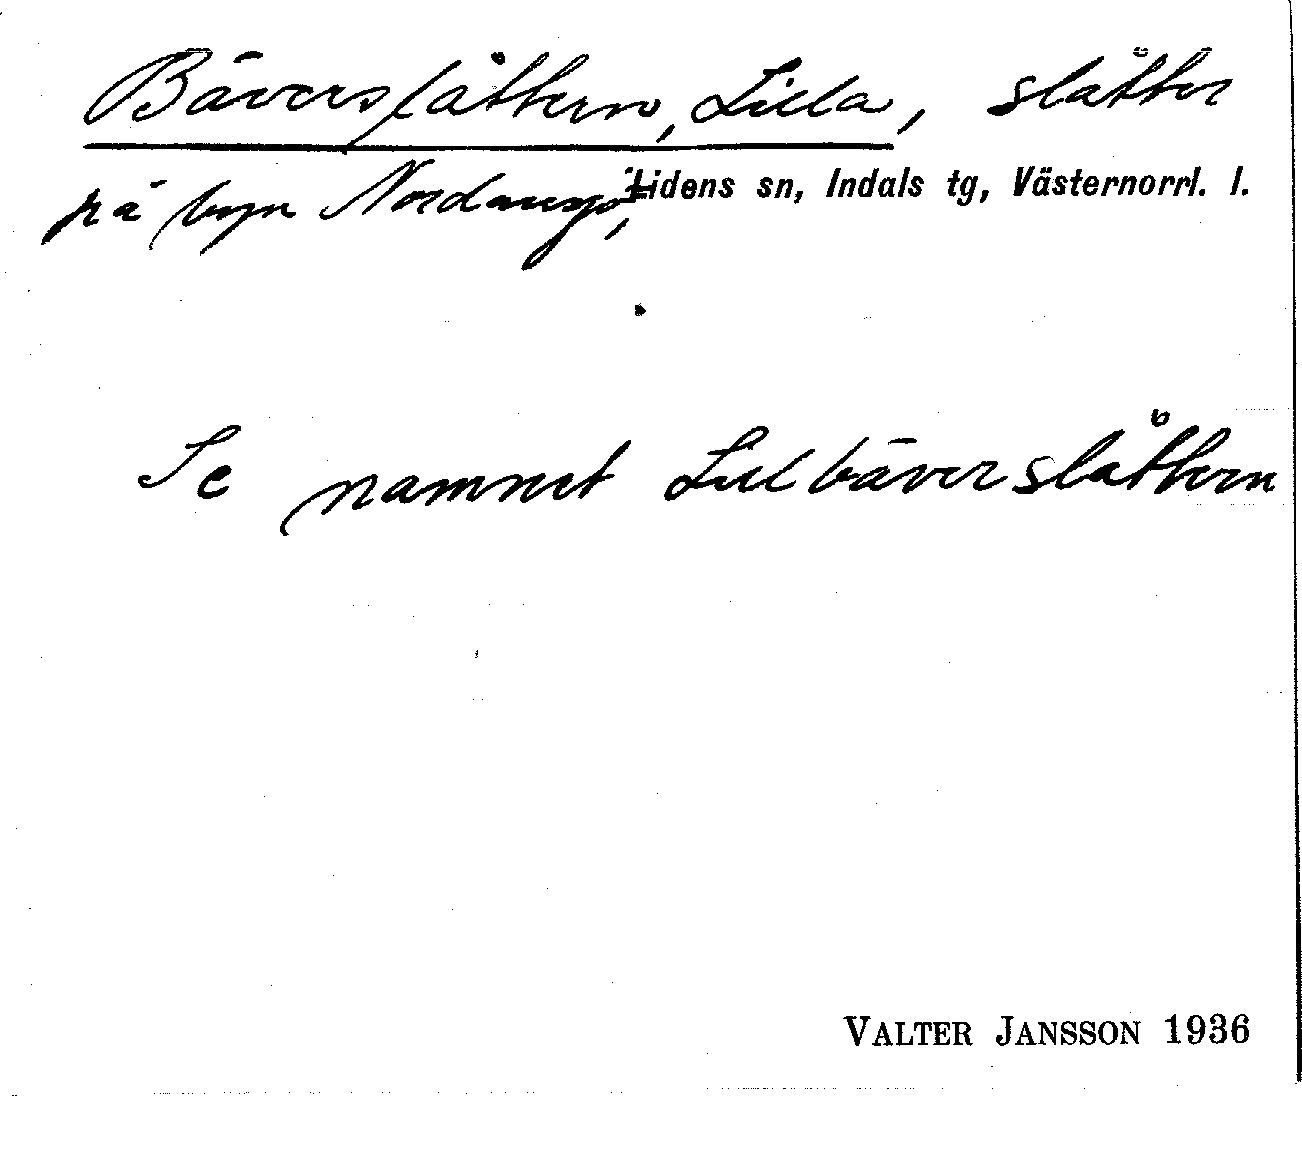 Bäverslåttern, Lilla, slåtter
på byn Nordansjö, Lidens sn, Indals tg, Västernorrl. l.
Se namnet Lillbäverslåttern
VALTER JANSSON 1936